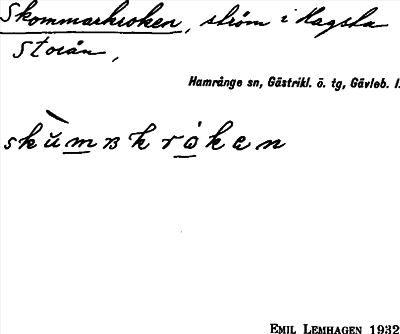 Skommarkroken, ström i Hagsta
Storån,
Hamrånge sn, Gästrikl. ö. tg, Gävleb. l.
skùmʀkrȯken
EMIL LEMHAGEN 1932